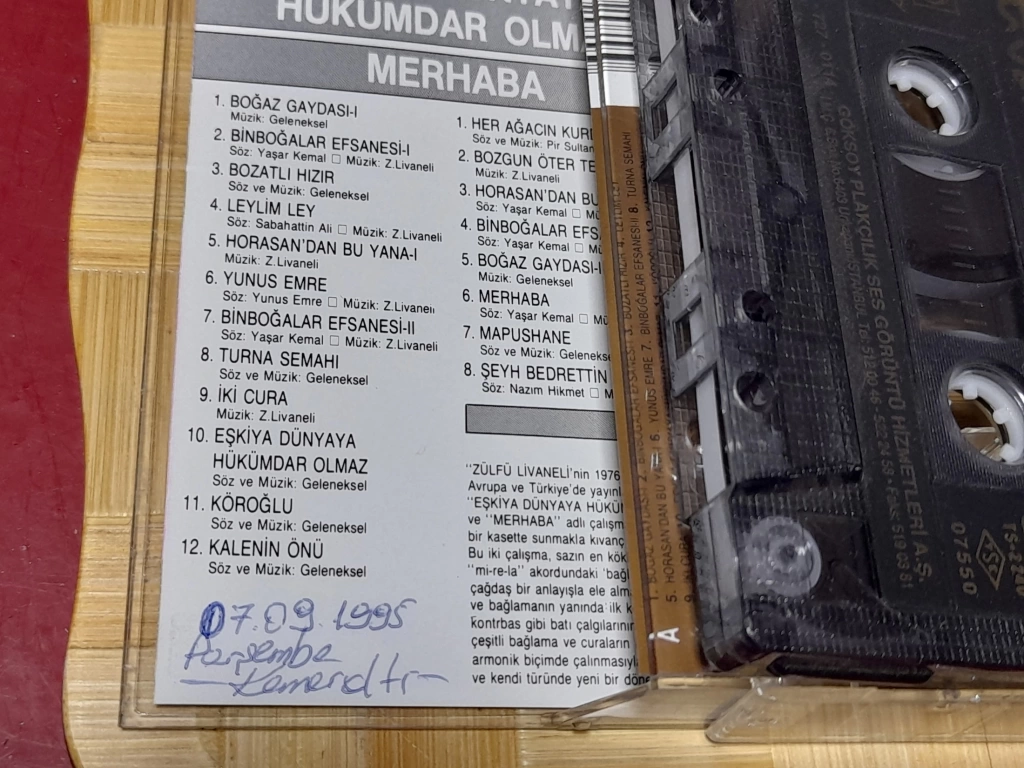 HÜKÜMDAR OLM
MERHABA
1. BOĞAZ GAYDASI-I
Müzik: Geleneksel
2. BİNBOĞALAR EFSANESİ-I
Söz: Yaşar Kemal □ Müzik: Z.Livaneli
3. BOZATLI HIZIR
Söz ve Müzik: Geleneksel
4. LEYLİM LEY
Söz: Sabahattin Ali □ Müzik: Z.Livaneli
5. HORASAN'DAN BU YANA-I
Müzik: Z.Livaneli
6. YUNUS EMRE
Söz: Yunus Emre □ Müzik: Z.Livaneli
7. BİNBOĞALAR EFSANESİ-II
Söz: Yaşar Kemal □ Müzik: Z.Livaneli
8. TURNA SEMAHI
Söz ve Müzik: Geleneksel
9. İKİ CURA
Müzik: Z.Livaneli
10. EŞKİYA DÜNYAYA
HÜKÜMDAR OLMAZ
Söz ve Müzik: Geleneksel
11. KÖROĞLU
Söz ve Müzik: Geleneksel
12. KALENİN ÖNÜ
Söz ve Müzik: Geleneksel
07.09.1995
Perşembe
1. HER AĞACIN KUR
Söz ve Müzik: Pir Sultan
2. BOZGUN ÖTER TE
Müzik: Z.Livaneli
3. HORASAN'DAN BU
Söz: Yaşar Kemal □ Mü
4. BİNBOĞALAR EFS
Söz: Yaşar Kemal □ M
5. BOĞAZ GAYDASI-I
Müzik: Geleneksel
6. MERHABA
Söz: Yaşar Kemal □ Mü
7. MAPUSHANE
Söz ve Müzik: Geleneksel
8. ŞEYH BEDRETTİN
Söz: Nazım Hikmet □ M
"ZÜLFÜ LİVANELİ'nin 1976
Avrupa ve Türkiye'de yayınl
"EŞKİYA DÜNYAYA HÜKÜ
ve "MERHABA" adlı çalışm
bir kasette sunmakla kıvanç
Bu iki çalışma, sazın en kök
"mi-re-la" akordundaki 'bağl
çağdaş bir anlayışla ele alm
ve bağlamanın yanında ilk k
kontrbas gibi batı çalgılarının
çeşitli bağlama ve curaların
armonik biçimde çalınmasıyl
ve kendi türünde yeni bir döne
A
GÖKSOY PLAKÇILIK SES GÖRÜNTÜ HİZMETLERİ A.Ş.
07550